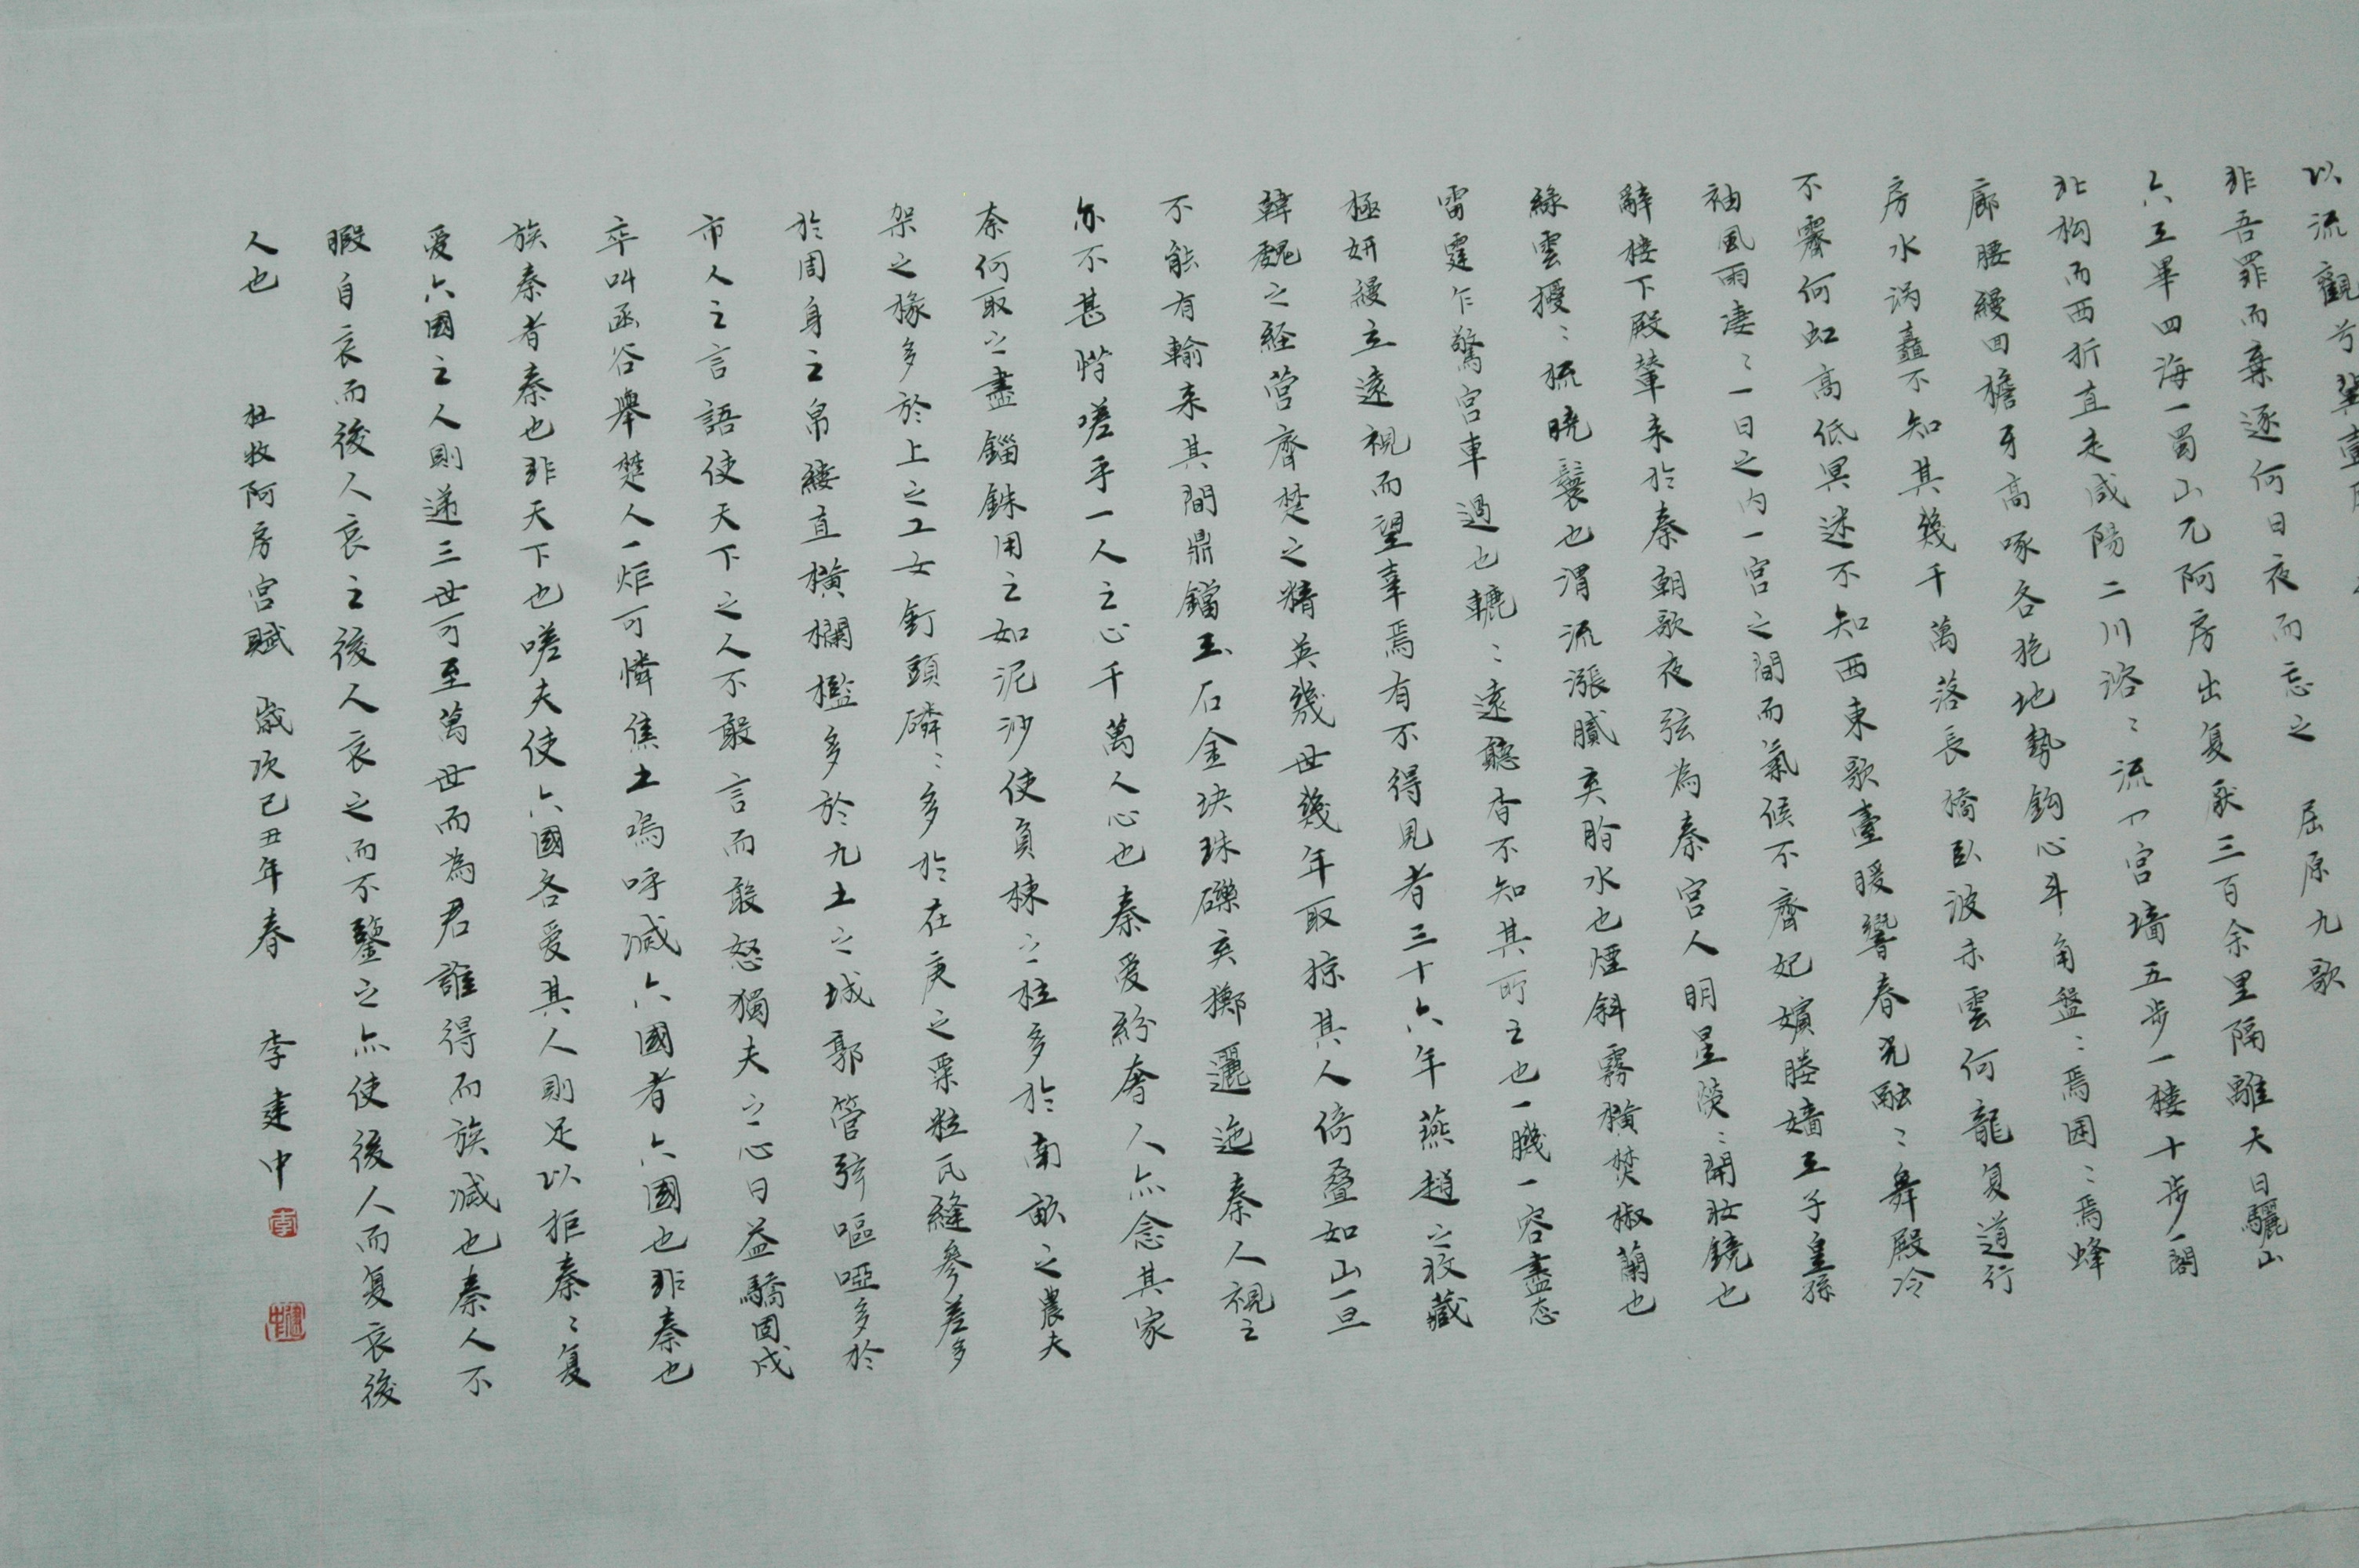 以流觀兮冀壹
非吾罪而棄逐何日夜而忘之 屈原九歌
六王畢四海一蜀山兀阿房出复厭三百余里隔離天日驪山
北构而西折直走咸陽二川溶〻流入宫墙五步一楼十步一閣
廊腰縵回檐牙高啄各抱地勢鈎心斗角盤〻焉囷〻焉蜂
房水涡矗不知其幾千萬落長橋臥波未雲何龍复道行
不霽何虹高低冥迷不知西東歌臺暖響春光融〻舞殿冷
袖風雨凄〻一日之内一宫之間而氣候不齊妃嬪媵嬙王子皇孫
辭楼下殿輦来於秦朝歌夜弦為秦宫人明星荧〻開妝鏡也
綠雲擾〻梳曉鬟也渭流漲膩弃脂水也煙斜霧横焚椒蘭也
雷霆乍驚宫車過也轆〻遠聽杳不知其所之也一肌一容盡态
極妍縵立遠視而望幸焉有不得見者三十六年燕趙之收藏
韓魏之経营齊楚之精英幾世幾年取掠其人倚叠如山一旦
不能有輸来其間鼎鐺玉石金块珠礫弃擲邐迤秦人視之
亦不甚惜嗟乎一人之心千萬人心也秦爱紛奢人亦念其家
奈何取之盡錙銖用之如泥沙使負棟之柱多於南畝之農夫
架之椽多於上之工女釘頭磷〻多於在庾之粟粒瓦縫參差多
於周身之帛縷直横欄檻多於九土之城郭管弦嘔啞多於
市人之言語使天下之人不敢言而敢怒獨夫之心日益驕固戍
卒叫函谷舉楚人一炬可憐焦土嗚呼滅六國者六國也非秦也
族秦者秦也非天下也嗟夫使六國各爱其人則足以拒秦〻复
爱六國之人則递三世可至萬世而為君誰得而族滅也秦人不
暇自哀而後人哀之後人哀之而不鑒之亦使後人而复哀後
人也 杜牧阿房宫賦 歲次己丑年春 李建中